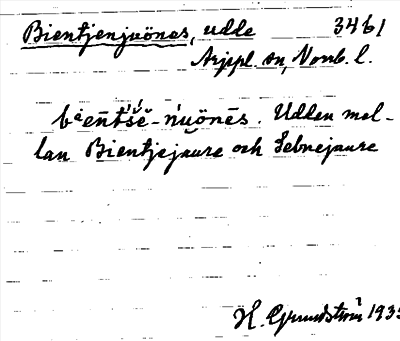 Bientjenjuönes, udde 3461
Arjepl. sn, Norrb. l.
bᵉeńt́šĕ-ńuŏnēs. Udden mel-
lan Bientjejaure och Sebnejaure
H. Grundström 1935